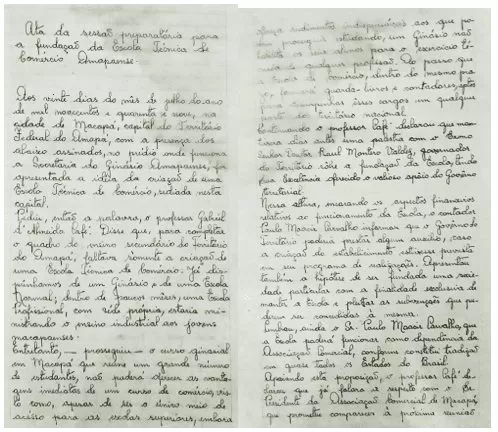 Ata da sessão preparatória para
a fundação da Escola Técnica de
Comércio Amapaense.
Aos vinte dias do mês de julho do ano
de mil novecentos e quarenta e nove, na
cidade de Macapá, capital do Território
Federal do Amapá, com a presença dos
abaixo assinados, no prédio onde funciona
a Secretaria do Ginásio Amapaense, foi
apresentada a idéia da criação de uma
Escola Técnica de Comércio, sediada nesta
capital.
Pediu, então a palavra, o professor Gabriel
d'Almeida Café. Disse que, para completar
o quadro do ensino secundário do Território
do Amapá, faltava somente a criação de
uma Escola Técnica de Comércio. Já dis-
púnhamos de um Ginásio e de uma Escola
Normal; dentro de poucos meses, uma Escola
Profissional, com sede própria, estaria mi-
nistrando o ensino industrial aos jovens
macapaenses.
Entretanto, — prosseguiu — o curso ginasial
em Macapá que reúne um grande número
de estudantes, não poderá oferecer as vanta-
gens imediatas de um curso de comércio, vis-
to como, apesar de ser o único meio de
acesso para as escolas superiores, embora
rudimentos indispensáveis aos que
prosseguir estudando, um Ginásio não
os seus alunos para o exercício
de qualquer profissão. Ao passo que
a Escola de Comércio, dentro do mesmo pra-
zo, formará guarda-livros e contadores, aptos
para desempenhar esses cargos em qualquer
ponto do território nacional.
Continuando o professor Café declarou que man-
tivera dias antes uma palestra com o Exmo
Senhor Doutor Raul Montero Valdez, governador
do Território sôbre a fundação da Escola, tendo
Sua Excelência oferecido o valioso apôio do Govêrno
Territorial.
Nessa altura, encarando os aspectos financeiros
relativos ao funcionamento da Escola, o contador
Paulo Moacir Carvalho informou que o Govêrno do
Território poderia prestar algum auxílio, caso
a criação do estabelecimento estivesse prevista
em seu programa de realizações. Apresentou
também a hipótese de ser fundada uma socie-
dade particular com a finalidade exclusiva de
manter a Escola e pleitear as subvenções que pu-
dessem ser concedidas à mesma.
Lembrou, ainda o Sr. Paulo Moacir Carvalho, que
a Escola poderia funcionar como dependência da
Associação Comercial, conforme constitui tradição
em quase todos os Estados do Brasil.
Apoiando esta proposição, o professor Café de-
clarou que já falara a respeito com o Sr.
Presidente da Associação Comercial de Macapá,
que prometeu comparecer à próxima reunião